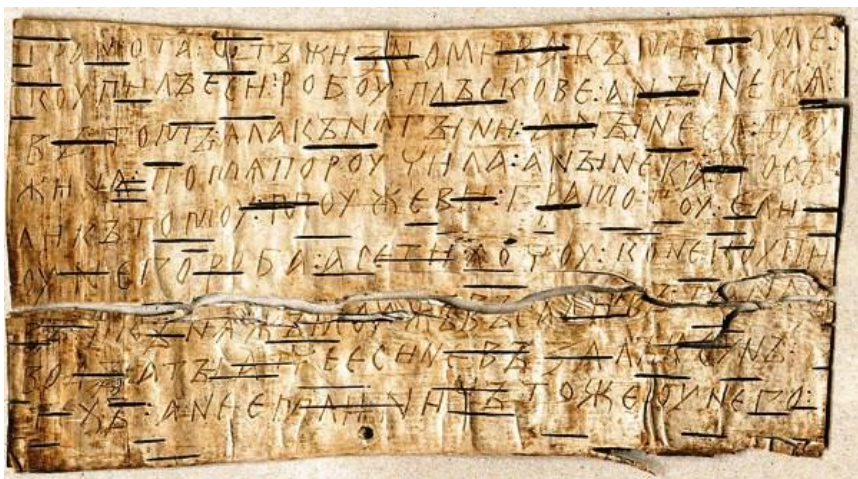 грамота : ѡтъ жизномира : къ микоуле :
коупилъ еси : робоу : плъскове : а нꙑне мѧ :
въ томъ : ѧла кънѧгꙑни : а нꙑне сѧ дроу
жина : по мѧ пороучила : а нꙑне ка : посъ
ли къ томоу : моужеви : грамотоу : е ли
оу него роба : а се ти хочоу : коне коупи
кънѧжъ моужъ въса
водꙑ : а тꙑ атче еси не възалъ коунъ :
техъ : а не емли : ничъто же оу него :